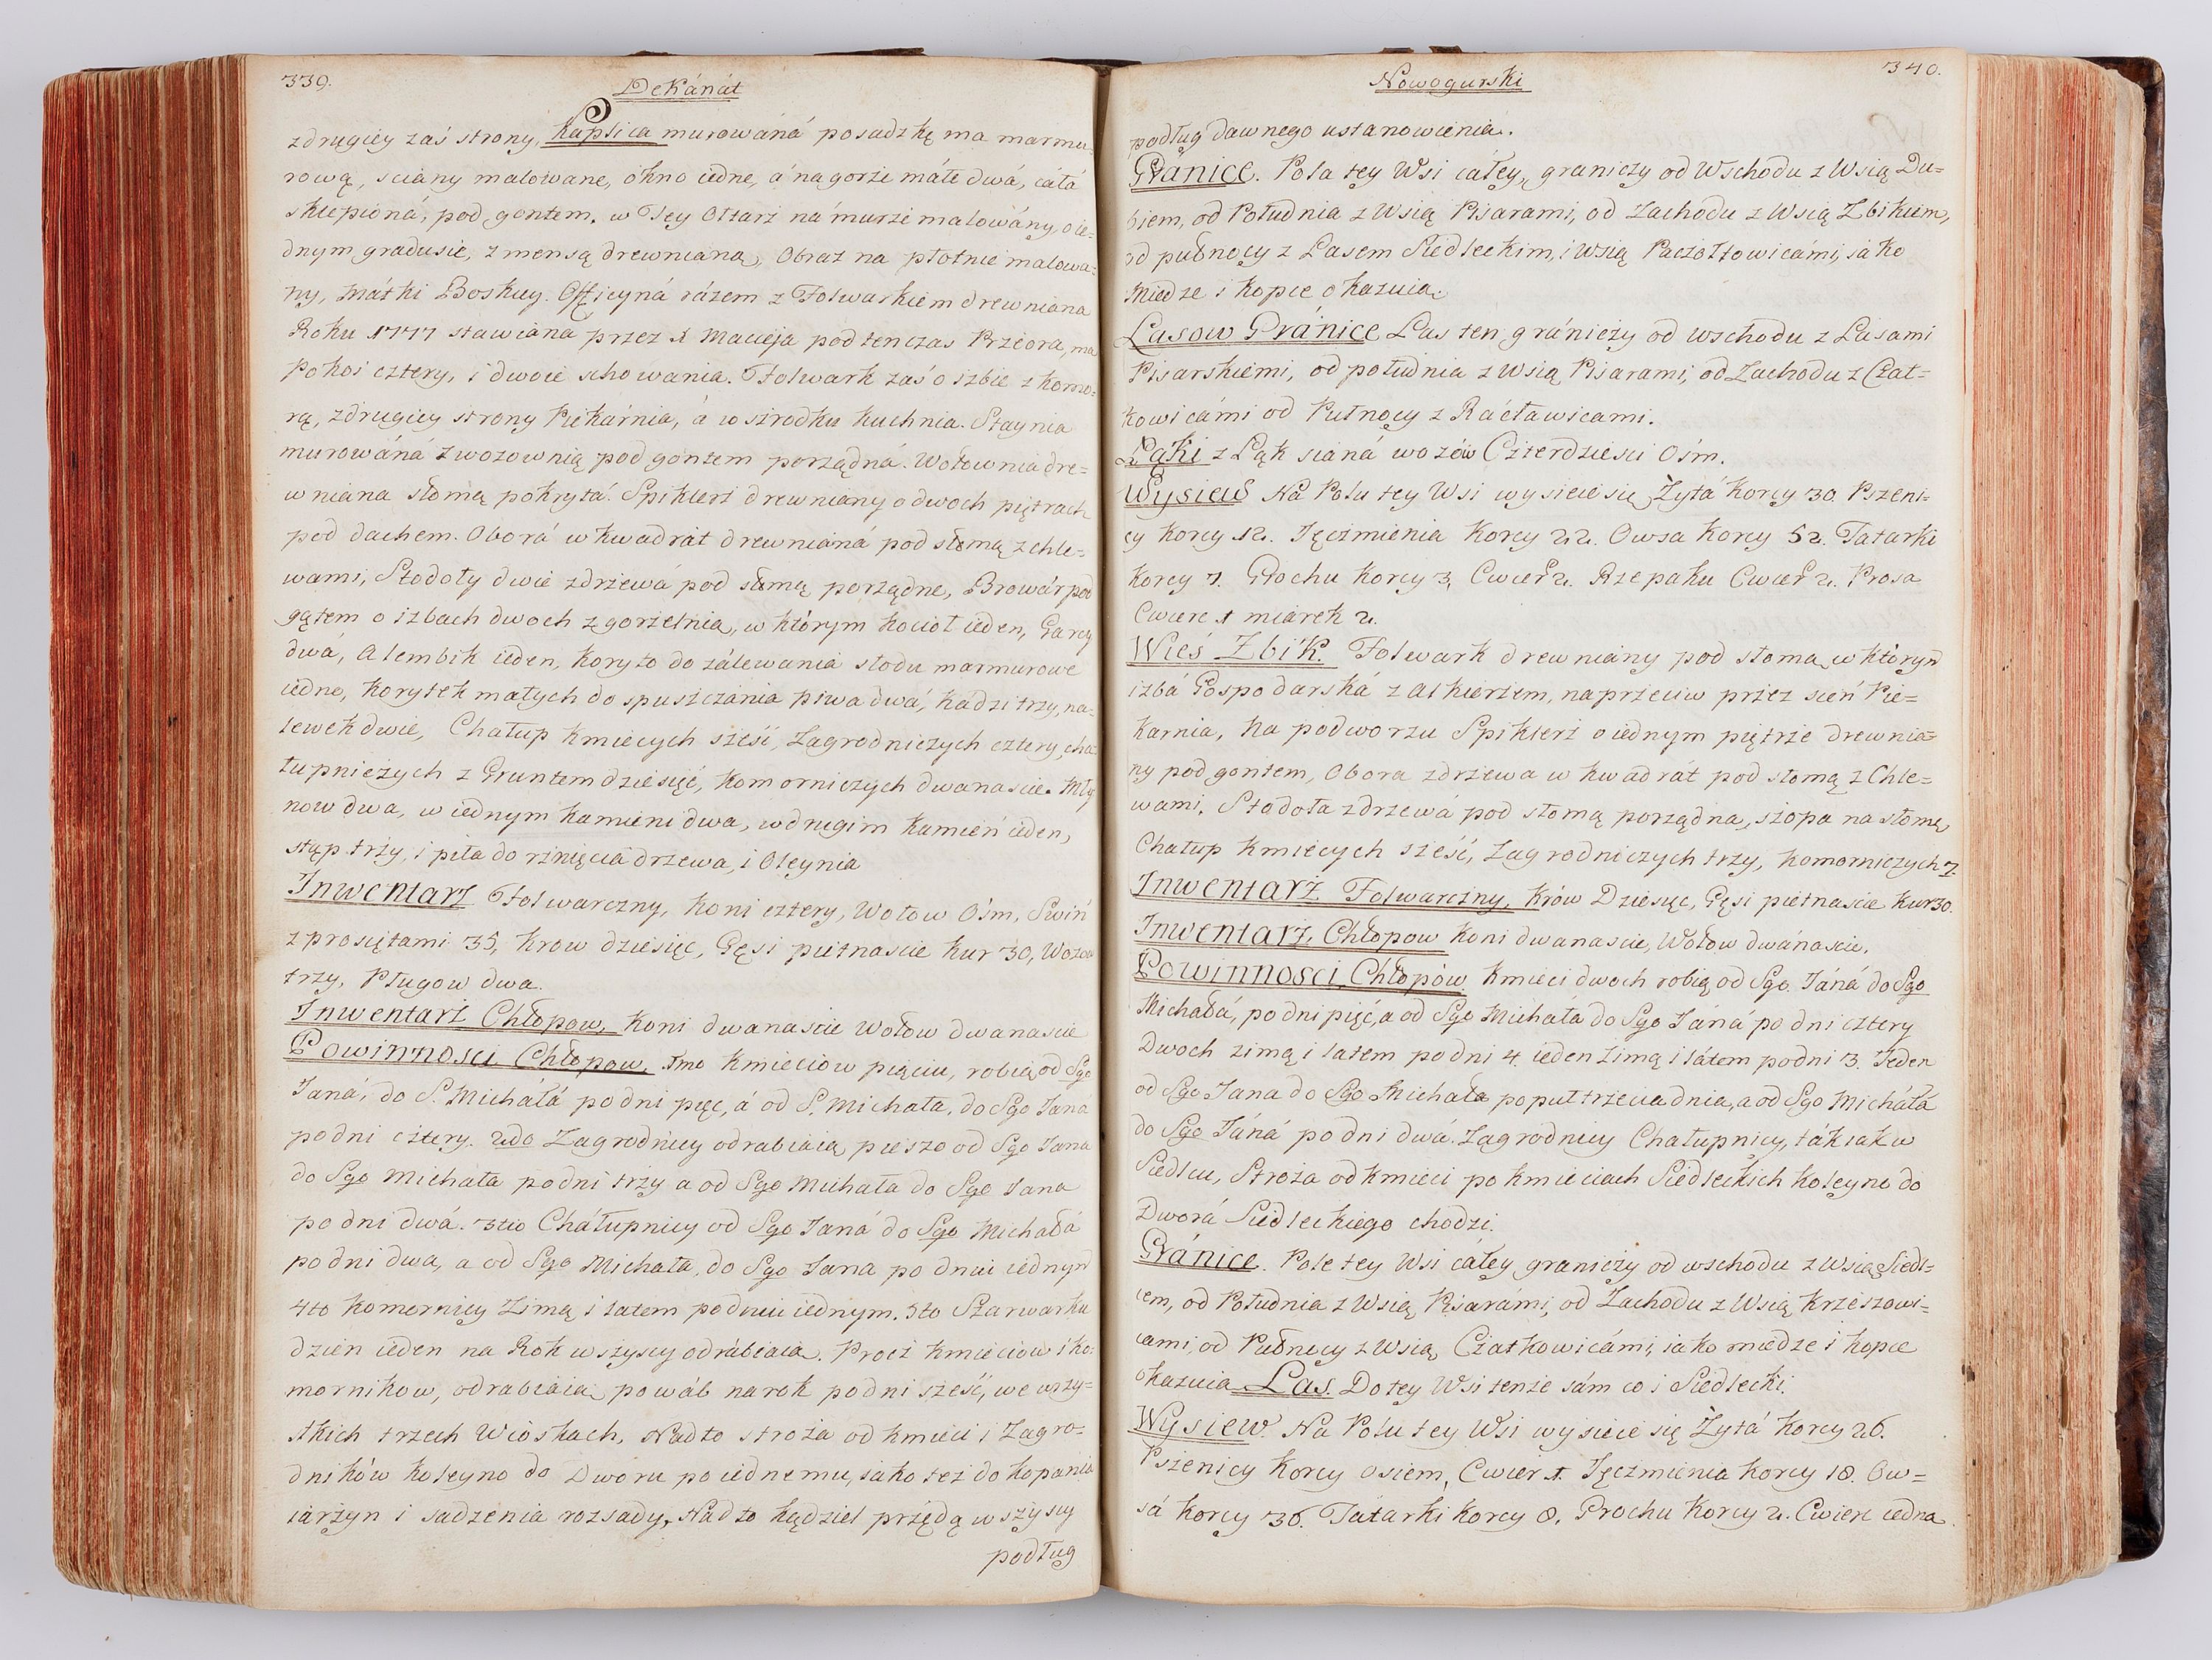 339.
Dekánát
zdrugiey zaś strony, Kaplica murowáná posadzkę ma marmu-
rową, sciany malowane, okno iedne, á na gorze máłe dwá, cáłá
sklepioná, pod gontem. w Tey Ołtarz na murze malowány, o ie-
dnym gradusie, z mensą drewnianą, Obraz na płotnie malowa-
ny, Mátki Boskiey. Officyná rázem z Folwarkiem drewniana
Roku 1777 stawiana przez X Macieja pod tenczas Przeora, ma
Pokoi cztery, i dwoie schowania. Folwark zaś o izbie z komo-
rą, zdrugiey strony Piekárnia, á w szrodku kuchnia. Staynia
murowáná z wozownią pod gontem porządná. Wołownia dre-
wniana słomą pokrytá. Spiklerz drewniany o dwoch piętrach
pod dachem. Oborá w kwadrát drewnianá pod słomą z chle-
wami, Stodoły dwie zdrzewá pod słomą porządne, Browár pod
gątem o izbach dwoch z gorzelnią, w którym kocioł ieden, Garcy
dwá, Alembik ieden, koryto do zálewania słodu marmurowe
iedno, korytek małych do spuszczánia piwa dwá, kádzi trzy, na-
lewek dwie, Chałup kmiecych sześć, Zagrodniczych cztery, cha-
łupniczych z Gruntem dziesięć, komorniczych dwanascie. Mły
now dwa, w iednym kamieni dwa, w drugim kamień ieden,
stąp trzy, i piła do rznięcia drzewa, i Oleynia
Inwentarz Folwarczny, koni cztery, Wołow Ośm, Swiń
z prosiętami 35, krow dziesięc, Gęsi pietnascie kur 30, Wozow
trzy, Pługow dwa.
Inwentarz Chłopow, koni dwanascie wołow dwanascie
Powinnosci Chłopow, 1mo kmieciow pięciu, robią od Sgo
Janá, do S. Micháłá po dni pięc, á od S. Michała, do Sgo Janá
po dni cztery. 2do Zagrodnicy odrabiaią pieszo od Sgo Jana
do Sgo Michała po dni trzy a od Sgo Michała do Sgo Jana
po dni dwá. 3tio Cháłupnicy od Sgo Janá do Sgo Michałá
po dni dwa, a od Sgo Michała, do Sgo Jana po dniu iednym
4to komornicy Zimą i latem po dniu iednym. 5to Szarwarku
dzien ieden na Rok wszyscy odrábiaią. Procz kmieciow i ko-
mornikow, odrabiaią powáb na rok po dni sześć, we wszy-
stkich trzech Wioskach, Nadto stroża od kmieci i Zagro-
dników koleyno do Dworu po iednemu, iako też do kopania
iarzyn i sadzenia rozsady, Nadto kądziel przędą wszyscy
podług
Nowogurski
340.
podług dawnego ustanowienia.
Gránice. Pola tey Wsi całey, graniczy od Wschodu z Wsią Du-
biem, od Południa z Wsią Pisarami, od Zachodu z Wsią Zbikiem,
od pułnocy z Lasem Siedleckim, i Wsią Paczołtowicámi, iako
Miedze i kopce okazuią.
Lasow Gránice Las ten grániczy od wschodu z Lasami
Pisarskiemi, od południa z wsią Pisarami, od Zachodu z Czat-
kowicámi od Pułnocy z Racławicami.
Łąki z Łąk sianá wozów Czterdziesci Ośm.
Wysiew Na Polu tey Wsi wysieie się Żytá Korcy 30. Pszeni-
cy korcy 12. Jęczmienia Korcy 22. Owsa Korcy 52. Tatarki
Korcy 7. Grochu Korcy 3, Cwierć 2. Rzepaku Cwierć 2. Prosa
Cwierc 1 miarek 2.
Wieś Zbik. Folwark drewniány pod słomą, w którym
izbá Gospodarská z Alkierzem, naprzeciw przez sień Pie-
karnia, Na podworzu Spiklerz o iednym piętrze drewnia-
ny pod gontem, Obora zdrzewa w kwadrát pod słomą z Chle-
wami, Stodoła zdrzewá pod słomą porządna, szopa na słomę
Chałup kmiecych sześć, Zagrodniczych trzy, komorniczych 7.
Inwentarz Folwarczny, Krów Dziesięc, Gęsi pietnascie kur 30.
Inwentarz Chłopow koni dwanascie, Wołow dwánascie.
Powinnosci Chłopów kmieci dwoch robią od Sgo Jáná do Sgo
Michałá, po dni pięć, a od Sgo Michałá do Sgo Jáná po dni cztery
Dwoch zimą i latem po dni 4. ieden zimą i látem po dni 3. Jeden
od Sgo Jana do Sgo Michała po puł trzecia dnia, a od Sgo Micháłá
do Sgo Jáná po dni dwá. Zagrodnicy Chałupnicy, ták iak w
Siedlcu, Stroża od kmieci po kmieciach Siedleckich koleyno do
Dworá Siedleckiego chodzi.
Gránice. Pole tey Wsi cáłey graniczy od wschodu z wsią Siedl-
cem, od Południa z Wsią Pisarámi, od Zachodu z Wsią Krzeszowi-
cami, od Pułnocy z Wsią Czatkowicámi, iako miedze i kopce
okazuią Las. Do tey Wsi tenże sám co i Siedlecki.
Wysiew. Na Polu tey Wsi wysieie się Żytá korcy 26.
Pszenicy korcy osiem, Cwier 1. Jęczmienia korcy 18. Ow-
sá korcy 36. Tátarki korcy 8. Grochu korcy 2. Cwierc iedna